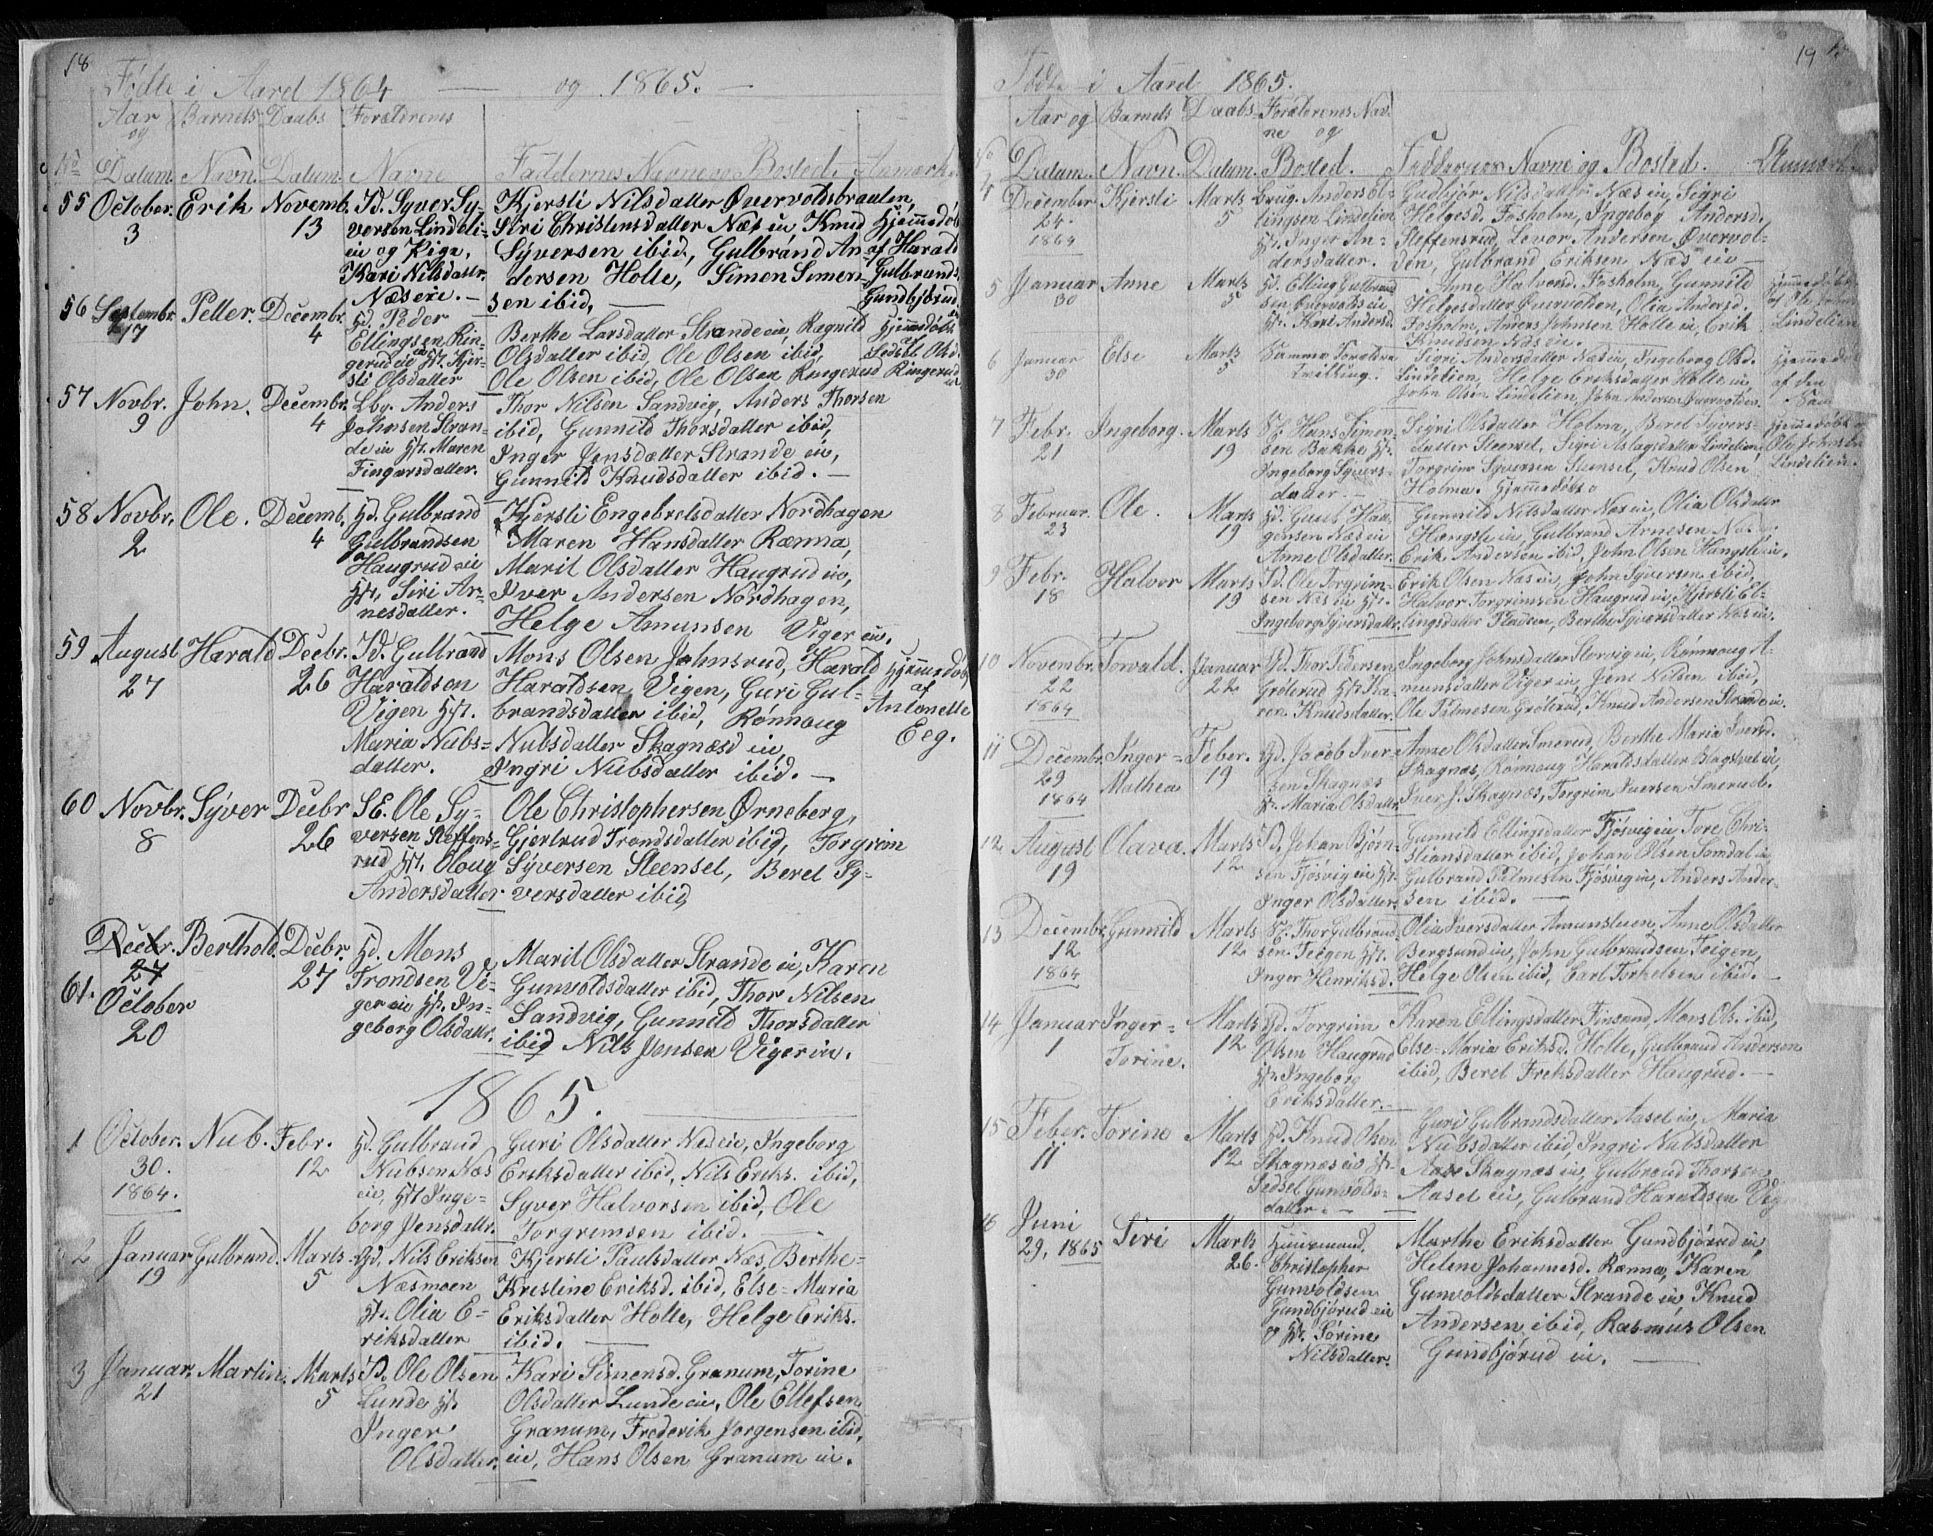 18
Fødte i Aaret 1864 — og 1865. —
Aar og Barnets Daabs Forældrenes
No Datum. Navn. Datum. Navne Faddernes Navne og Bosted. Anmærk.
55 October 3 Erik Novemb. 13
Id. Syver Sy-
versen Lindeli-
ei og Piga,
Kari Nilsdattr.
Næseie. —
Kjersti Nilsdatter Øvervoldsbraaten,
Siri Christensdatter Næs ei, Knud
Syversen ibid, Gulbrand An-
dersen Holte, Simen Simen-
sen ibid, —
Hjemmedøb.
af Harald
Gulbrands.
Gundbjørud
56 Septembr. 17 Petter. Decembr. 4
Gd. Peder
Ellingsen Rin-
gerud eie og Hst. Kjer-
sti Olsdatter
Berthe Larsdatter Strande ei, Ragnild
Olsdatter ibid, Ole Olsen ibid,
Ole Olsen ibid, Ole Olsen Ringerud
Hjemmedøbt
af
Olsd.
Ringerud
57 Novbr. 9 John. Decembr. 4
Lbg. Anders
Johnsen Stran-
de ei Hst. Maren
Fingarsdatter.
Thor Nilsen Sandvig, Anders Thorsen
ibid, Gunnild Thorsdatter ibid,
Inger Jensdatter Strande ei,
Gunnild Knudsdatter ibid. —
58 Novbr. 2 Ole. Decemb. 4
Gd. Gulbrand
Gulbrandsen
Haugrud eie
Hst. Siri Ar-
nesdatter.
Kjersti Engebretsdatter Nordhagen
Maren Hansdatter Rænna,
Marit Olsdatter Haugrud eie,
Iver Andersen Nordhagen,
Helge Amunsen Viger ei.
59 August 27 Harald Decbr. 26
Id. Gulbrand
Haraldsen
Vigen Hst.
Maria Nubs-
datter.
Mons Olsen Johnsrud, Harald
Haraldsen Vigen, Guri Gul-
brandsdatter ibid, Rønnaug
Nubsdatter Skagnæsd ei,
Ingri Nubsdatter ibid. —
Hjemmedøb.
af
Antonette
Eeg.
60 Novbr. 8 Syver Decbr 26
SE. Ole Sy-
versen Steffens-
rud Hst. Oloug
Andersdatter
Ole Christophersen Ørneberg,
Gjertrud Trondsdatter ibid, Torgrim
Syversen Steensel, Beret Sy-
versdatter ibid
61. Decbr. 27 October 20 Berthold. Decbr. 27
Gd. Mons
Trondsen Vi-
ger eie Hst. In-
geborg Olsdatt.
Marit Olsdatter Strande ei, Karen
Gunvoldsdatter ibid, Thor Nilsen
Sandvig, Gunnild Thorsdatter
ibid Nils Jensen Viger ei.
1865.
1 October. 30. 1864. Nub. Febr. 12
Gd. Gulbrand
Nubsen Næs
ei, Hst Inge-
borg Jensdattr.
Guri Olsdatter Næs eie, Ingeborg
Eriksdatter ibid, Nils Eriks. ibid,
Syver Halvorsen ibid, Ole
Torgrimsen ibid.
2 Januar 19 Gulbrand. Marts 5
Gd. Nils Eriksen
Næsmoen
Hst. Olia E-
riksdatter
Kjersti Paulsdatter Næs, Berthe-
Kristine Eriksd. ibid, Else-Maria
Eriksdatter Holte, Helge Eriks.
ibid. —
3 Januar. 21 Martin. Marts 5
Id. Ole Olsen
Lunde Hst.
Inger
Olsdatter.
Kari Simensd. Granum, Torine
Olsdatter Lunde ei, Ole Ellefsen
Granum, Frederik Jorgensen ibid,
ei, Hans Olsen Granum ei.
19
Fødte i Aaret 1865.
Aar og Barnets Daabs Forælderenes Nav-
ne og
No Datum. Navn. Datum. Bosted. Faddernes Navne og Bosted. Anmærk.
4 December 24. 1864 Kjersti Marts 5
Brug. Anders El-
lingsen Lindelien
Hst. Inger An-
dersdatter.
Gudbjør Nilsdatter Næs ei, Sigri
Helgesd. Fosholm, Ingebog Andersd.
Steffensrud, Levor Andersen Øvervol-
den, Gulbrand Eriksen Næs ei —
5 Januar 30 Anne Marts 5
Gd. Elling Gulbrand
sen Øvervolden
Hst. Kari Andersd.
Anne Halvorsd. Fosholm, Gunnild
Helgesdatter Øvervolden, Olia Andersd.
Fosholm, Anders Johnsen Holte ei, Erik
Knudsen Næs ei.
Hjemmedøbt
af Ole Johns
Lindelien
6 Januar 30 Else Marts 5
Samme Forældre
Tvilling.
Sigri Andersdatter Næs ei, Ingeborg Olsd.
Lindelien, Helge Eriksdatter Holte ei,
John Olsen Lindelien, John Andersen Øvervolden
Hjemmedøbt
af den
7 Febr. 21 Ingeborg. Marts 19
Hans Simen-
sen Bakke Hst.
Ingeborg Syvers-
datter. —
Sigri Olsdatter Holma, Beret Syvers-
datter Steensel, Sigri Aslagsdatter Lindelien,
Torgrim Syversen Stensel, Knud Olsen
Holma. Hjemmedøbt
Hjemmedøbt
Ole Johnsen
Lindelien.
8 Februar. 23 Ole. Marts 19
Gd. Guul Haa-
gensen Næs ei
Anne Olsdatter.
Gunnild Nilsdatter Næs ei, Olia Olsdatter
Hængsle ei, Gulbrand Arnesen Næs ei
Erik Andersen ibid, John Olsen Hængsle ei.
9 Febr. 18 Halvor Marts 19
Id. Ole Torgrim-
sen Næs ei Hst.
Ingeborg Syversdattr.
Erik Olsen Næs ei, John Syversen ibid,
Halvor Torgrimsen Haugrud ei, Kjersti El-
lingsdatter Fladsen, Berthe Syversdatter Næs ei.
10 Novembr. 22 1864 Torvald. Januar 22
Gd. Thor Pedersen
Grøterud Hst Ka-
ren Knudsdatter
Ingeborg Johnsdatter Storvig ei, Rønnoug A-
munsdatter Viger ei, Jens Nilsen ibid,
Ole Pilmesen Grøterud, Knud Andersen Strande ei.
11 Decembr. 29 1864 Inger-Mathea Feber. 19
Gd. Jacob Iver-
sen Skagnæs
Hst. Maria Olsdattr.
Anne Olsdatter Smerud, Berthe Maria Iversd.
Skagnæs, Rønnoug Haraldsdatter Bagstvet ei,
Iver J. Skagnæs, Torgrim Iversen Smerude.
12 August 19 Olava. Marts 12
Id. Johan Bjørn-
sen Fjøsvig ei Hst.
Inger Olsdatter.
Gunnild Ellingsdatter Fjøsvig ei, Tore Chri-
stiansdatter ibid, Johan Olsen Somdal ei,
Gulbrand Pilmesen Fjøsvig ei, Anders Ander-
sen ibid. —
13 Decembr. 12 1864 Gunnild Marts 12
Thor Gulbrand-
sen Teigen Hst.
Inger Henriksd.
Olia Iversdatter Amunslien, Anne Olsdatter
Bergsund ei, John Gulbrandsen Teigen,
Helge Olsen ibid, Carl Torkelsen ibid. —
14 Januar 1 Inger-Torine. Marts 12
Gd. Torgrim
Olsen Haugrud
Hst. Ingeborg
Eriksdatter. —
Karen Ellingsdatter Finsand, Mons Ols. ibid,
Else-Maria Eriksd. Holte, Gulbrand Andersen
ibid, Beret Freksdatter Haugrud. —
15 Feber. 11 Torine Marts 12
Gd. Knud Olsen
Skagnæs ei Hst.
Sedsel Gunvolds-
datter. —
Guri Gulbrandsdatter Aasel ei, Maria
Nubsdatter ibid, Ingri Nubsdatter
Skagnæs ei, Gulbrand Thorsen
Aasel ei, Gulbrand Haraldsen Vige
16 Juni 29, 1865 Siri Marts 26.
Huusmand,
Christopher
Gunvoldsen
Gundbjørud eie
og Hst. Sørine
Nilsdatter.
Marthe Eriksdatter Gundbjørud ei,
Helene Johannesd. Rænna, Karen
Gunvoldsdatter Strande ei, Knud
Andersen ibid, Rasmus Olsen
Gundbjørud ei. —